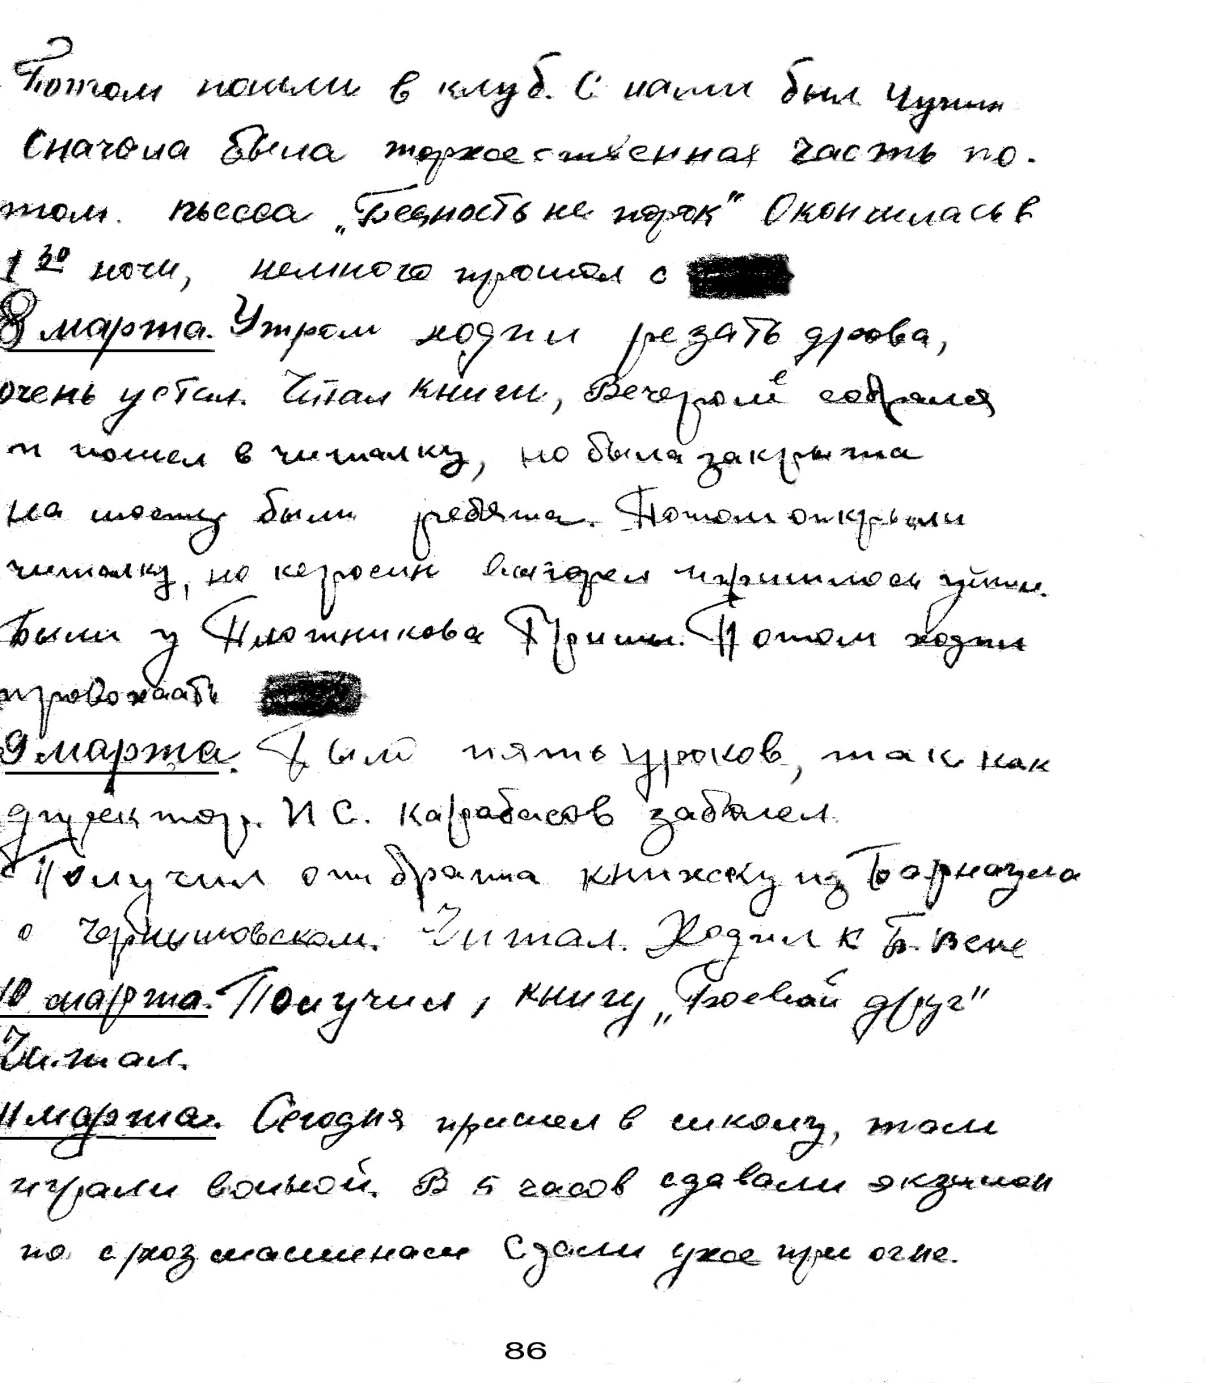 Потом пошли в клуб. С нами был Чупин
Сначала была торжественная часть по-
том. пьесса „Бедность не порок" Окончилась в
1 30 ночи, немного прошел с
8 марта. Утром ходил резать дрова,
очень устал. Читал книги, Вечером собрался
и пошел в читалку, но была закрыта
на мосту были ребята. Потом открыли
читалку, но керосин выгорел и пришлось уйти.
Были у Плотникова Гриши. Потом ходил
провожать
9 марта. Было пять уроков, так как
директор. И С. Карабасов заболел.
Получил от брата книжку из Барнаула
о Чернышовском. Читал. Ходил к Б. Вене
10 марта. Получил, книгу „Боевой друг"
Читал.
11 марта. Сегодня пришел в школу, там
играли войной. В 5 часов сдавали экзамен
по с/хоз машинам Сдали уже при огне.
86